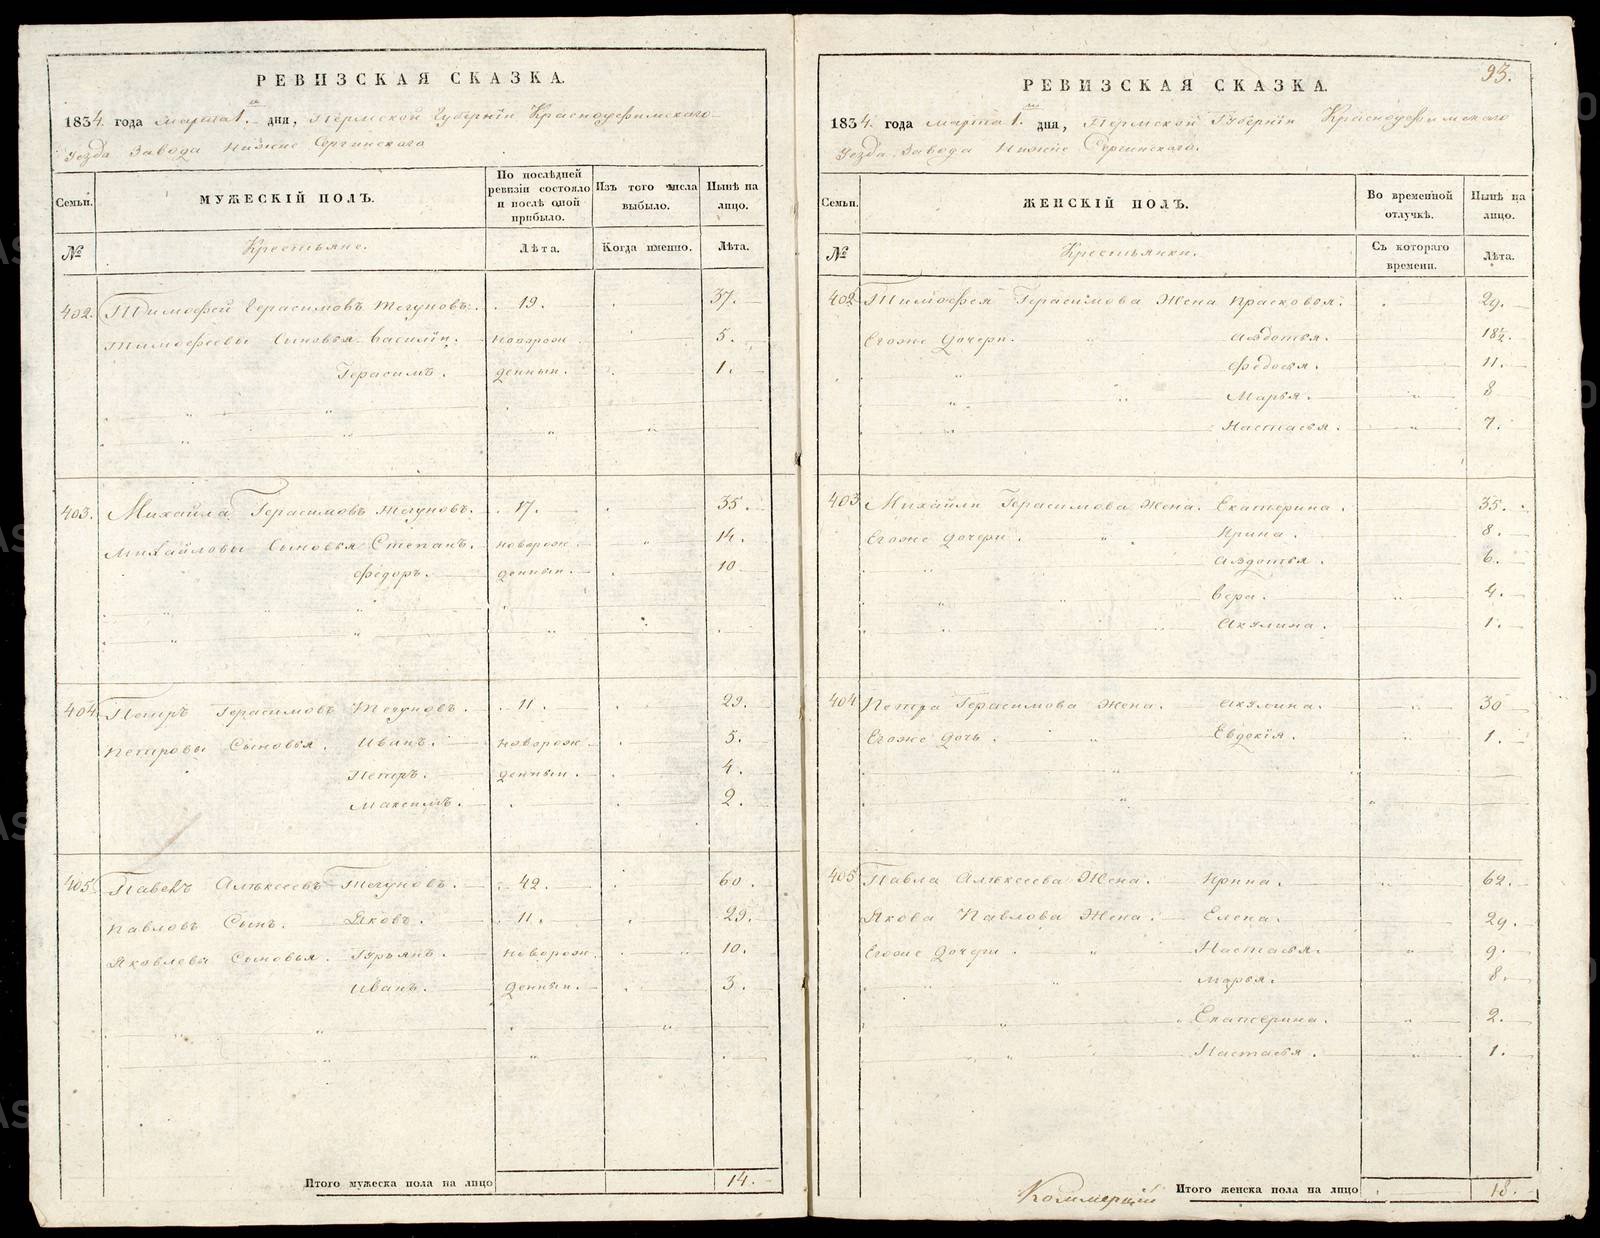 РЕВИЗСКАЯ СКАЗКА.
1834. года марта 1. дня, Пермской Губерніи Красноуфимского
Уезда Завода Нижне Сергинскаго
Семьи. МУЖЕСКІЙ ПОЛЪ. По послѣдней ревизіи состояло и послѣ оной прибыло. Изъ того числа выбыло. Нынѣ на лицо.
№ Крестьяне. Лѣта. Когда именно. Лѣта.
402. Тимофей Герасимовъ Тегуновъ. 19. 37.
Тимофеевы Сыновья Василій. новорож 5.
Герасимъ. денныи. 1.
403. Михайла Герасимовъ Тегуновъ. 17. 35.
Михайловы Сыновья Степанъ. новорож. 14.
Федоръ. денныи. 10
404 Петръ Герасимовъ Тегуновъ. 11. 29.
Петровы Сыновья. Иванъ. новорож. 5.
Петръ. денныи. 4.
Максимъ. 2.
405 Павелъ Алексеевъ Тегуновъ. 42. 60.
Павловъ Сынъ. Яковъ. 11. 29.
Яковлевы Сыновья. новорож. 10.
Иванъ. денныи. 3.
Итого мужеска пола на лицо 14.
93.
РЕВИЗСКАЯ СКАЗКА.
1834. года марта 1. дня, Пермской Губерніи Красноуфимского
Уезда Завода Нижне Сергинскаго.
Семьи. ЖЕНСКІЙ ПОЛЪ. Во временной отлучкѣ. Нынѣ на лицо.
№ Крестьянки. Съ котораго времени. Лѣта.
402 Тимофея Герасимова Жена Прасковья. 29.
Егоже дочери. Авдотья. 18½.
Федосья. 11.
Марья. 8
Настасья. 7.
403 Михайли Герасимова Жена. Екатерина. 35.
Егоже дочери. Ирина. 8.
Авдотья. 6.
Вера. 4.
Акулина. 1.
404 Петра Герасимова Жена. Акулина. 30
Егоже дочь. Евдокія. 1.
405 Павла Алексеева Жена. Ирина. 62.
Якова Павлова Жена. Елена. 29.
Егоже дочери. Настасья. 9.
Марья. 8.
Екатерина. 2.
Настасья. 1.
Итого женска пола на лицо 18.